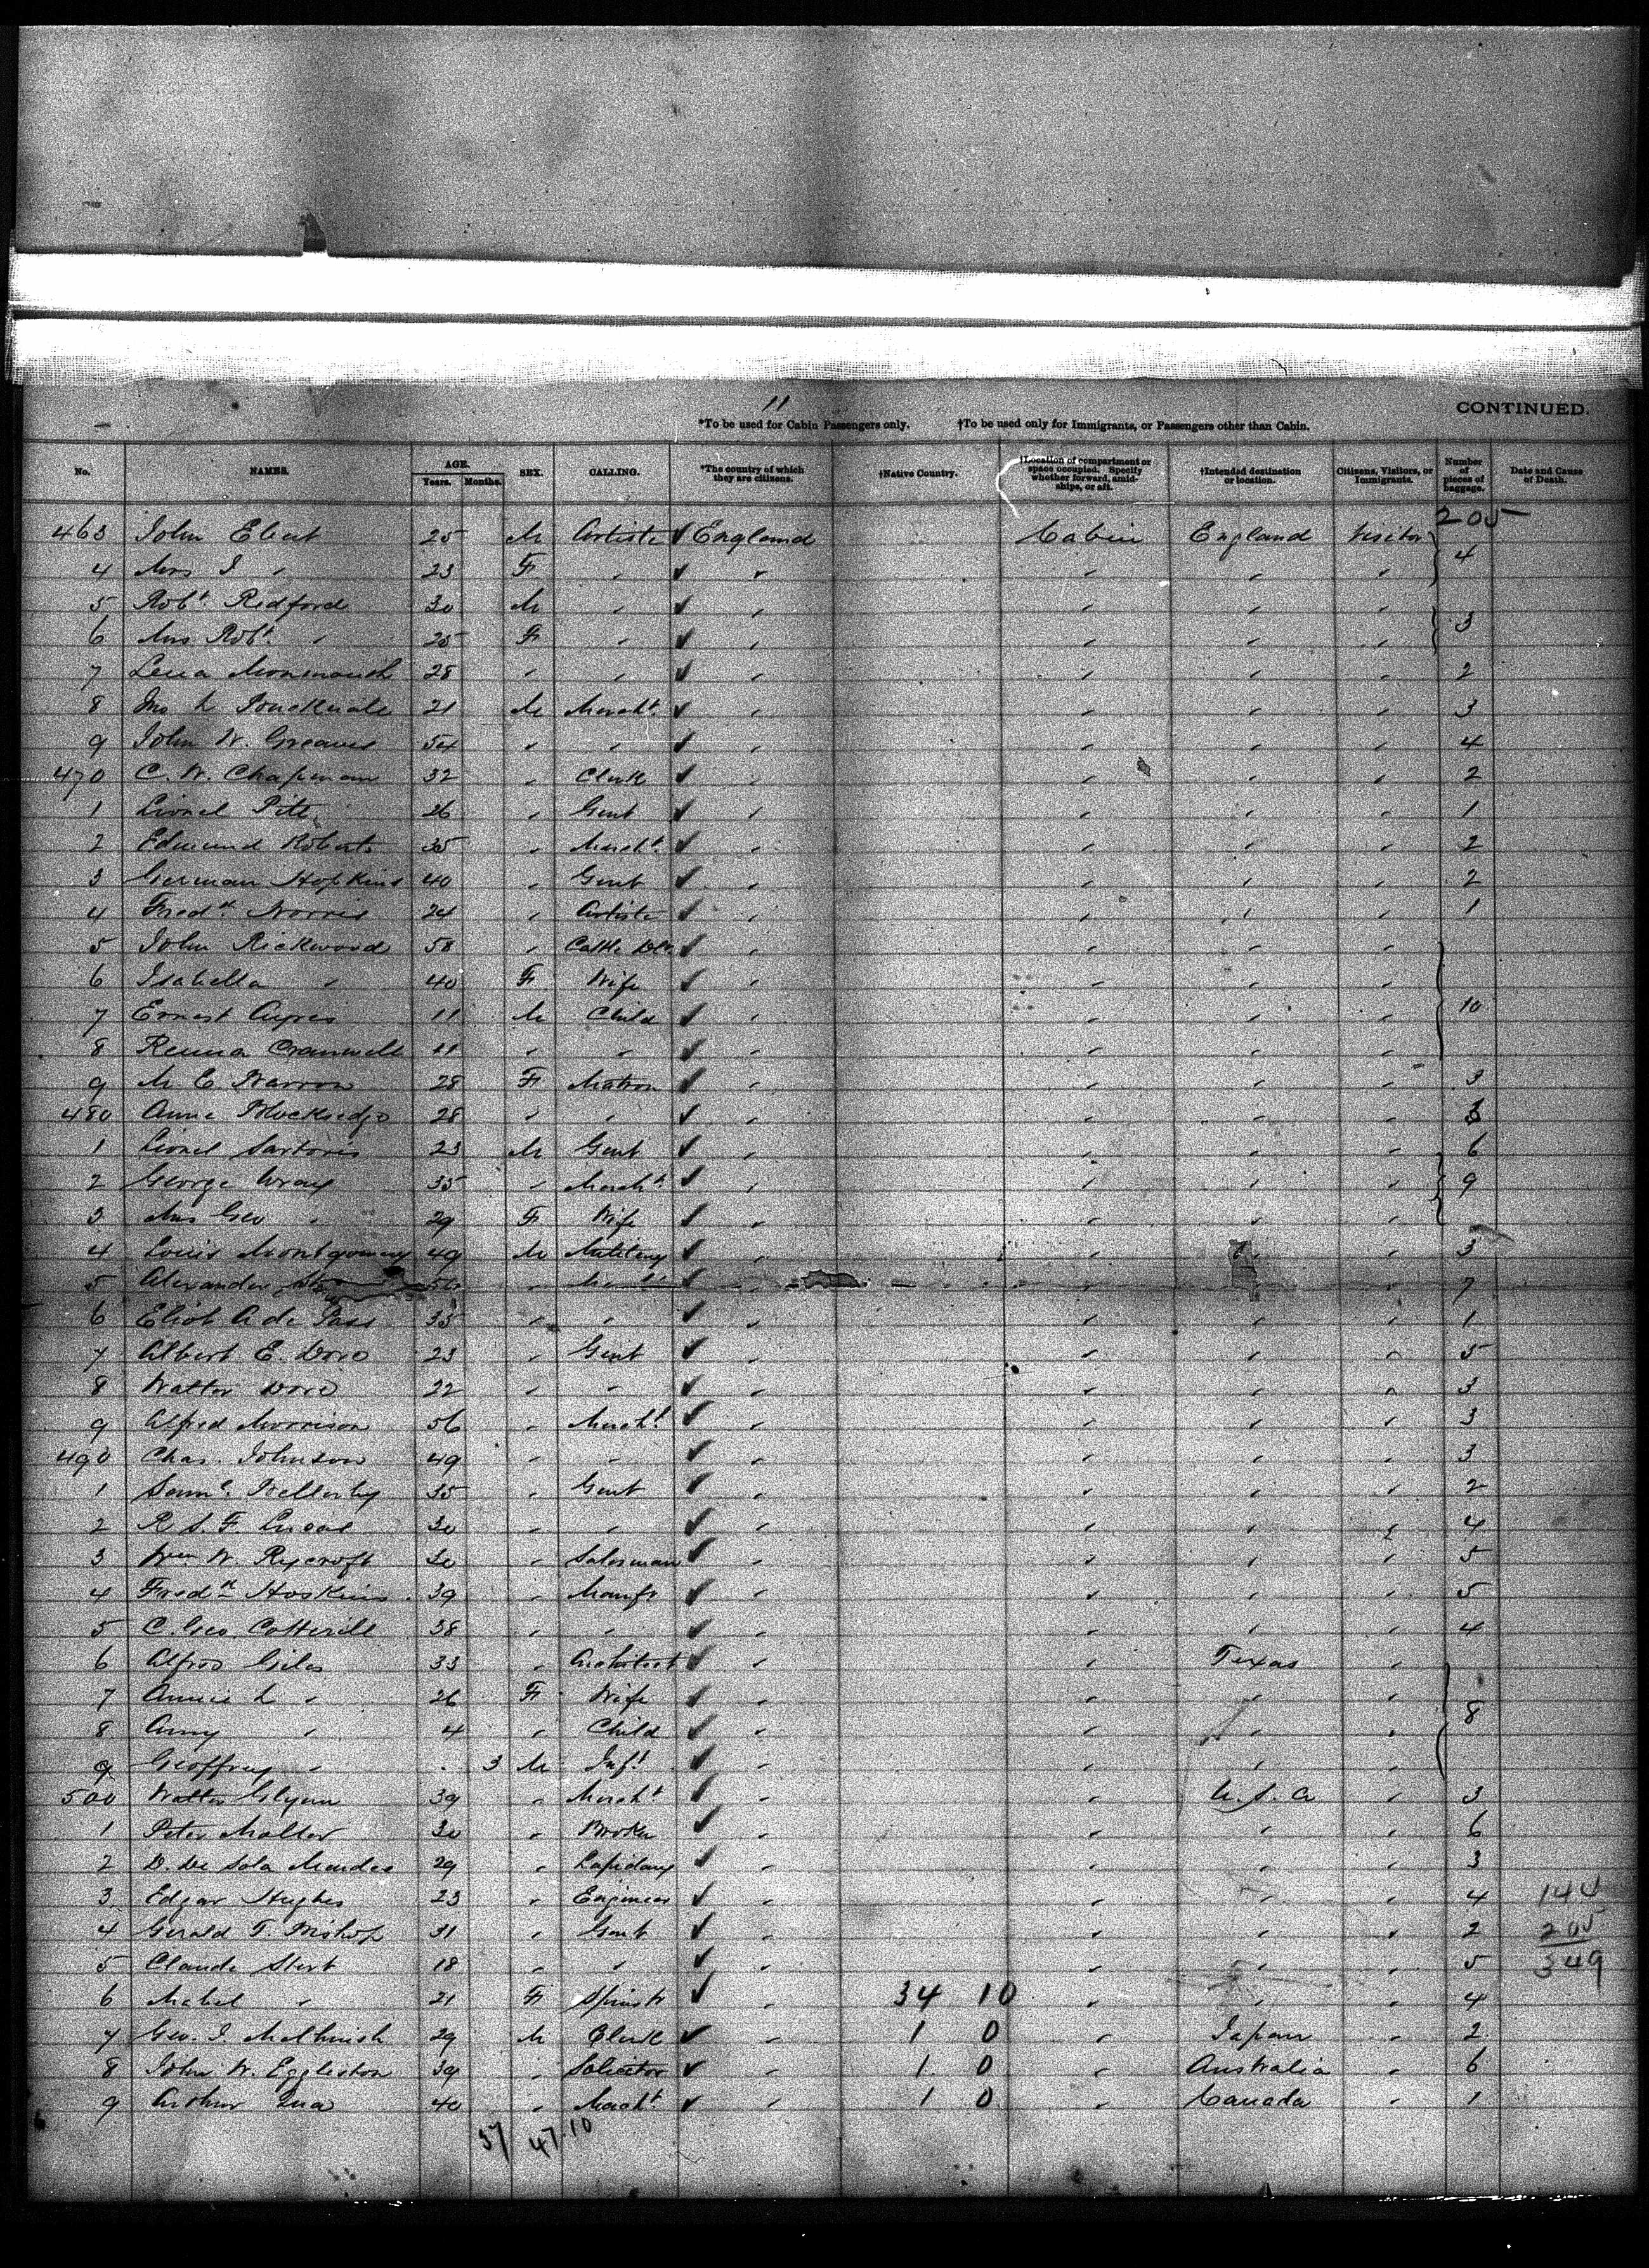 11
CONTINUED.
*To be used for Cabin Passengers only. †To be used only for Immigrants, or Passengers other than Cabin.
No. NAMES. AGE. Years. Months. SEX. CALLING. *The country of which they are citizens. †Native Country. †Location of compartment or space occupied. Specify whether forward, amidships, or aft. †Intended destination or location. Citizens, Visitors, or Immigrants. Number of pieces of baggage. Date and Cause of Death.
205
463 John 25 M Artiste ✓ England Cabin England Visitor 4
4 Mrs J " 23 F " ✓ " " " "
5 Robt. Redford 30 M " ✓ " " " " 3
6 Mrs Robt. " 25 F " ✓ " " " "
7 Lena 28 " " ✓ " " " " 2
8 Jno L 21 M Mercht. ✓ " " " " 3
9 John W. Greaves 54 " " ✓ " " " " 4
470 C. W. Chapman 32 " Clerk ✓ " " " " 2
1 Lionel Pitt 26 " Gent ✓ " " " " 1
2 Edmund Roberts 35 " Mercht. ✓ " " " " 2
3 German Hopkins 40 " Gent ✓ " " " " 2
4 Fredk Norris 24 " Artiste ✓ " " " " 1
5 John Rickwood 58 " Cattle Dlr. ✓ " " " "
6 Isabella " 40 F Wife ✓ " " " "
7 Ernest Ayres 11 M Child ✓ " " " " 10
8 Cranwell 11 " " ✓ " " " "
9 M E Warron 28 F Matron ✓ " " " " 3
480 Anne 28 " " ✓ " " " " 3
1 Lionel Sartoris 23 M Gent ✓ " " " " 6
2 George Wray 35 " Mercht. ✓ " " " " 9
3 Mrs Geo " 29 F Wife ✓ " " " "
4 Louis Montgomery 49 M Military ✓ " " " " 3
5 Alexander " ✓ " " " 7
6 Eliot A de Pass 35 " " ✓ " " " " 1
7 Albert E. Dore 23 " Gent ✓ " " " " 5
8 Walter Dore 22 " " ✓ " " " " 3
9 Alfred Morrison 56 " Mercht ✓ " " " " 3
490 Chas. Johnson 49 " " ✓ " " " " 3
1 Saml. 35 " Gent ✓ " " " " 2
2 R S. F. Lucas 30 " " ✓ " " " " 4
3 Wm W. Rycroft 30 " Salesman ✓ " " " " 5
4 Fredk Hoskins 39 " Manfr ✓ " " " " 5
5 C. Geo. Cotterill 38 " " ✓ " " " " 4
6 Alfred Giles 33 " Architect ✓ " " Texas "
7 Annie L " 26 F Wife ✓ " " " " 8
8 Amy " 4 " Child ✓ " " " "
9 Geoffrey " . 3 M Inft. ✓ " " " "
500 Walter Glynn 39 " Mercht ✓ " " U.S.A " 3
1 Peter Moller 30 " Broker ✓ " " " " 6
2 D. De Sola Mendes 29 " Lapidary ✓ " " " " 3
3 Edgar Hughes 23 " Engineer ✓ " " " " 4 144
4 Gerald T. Bishop 31 " Gent ✓ " " " " 2 205
5 Claude Stert 18 " " ✓ " " " " 5 349
6 Mabel " 21 F Spinstr ✓ " 34 10 " " " 4
7 Geo. J. Melhuish 29 M Clerk ✓ " 1 0 " Japan " 2
8 John W. Eggleston 39 " Solicitor ✓ " 1 0 " Australia " 6
9 Arthur 40 " Mercht. ✓ " 1 0 " Canada " 1
37 47.10